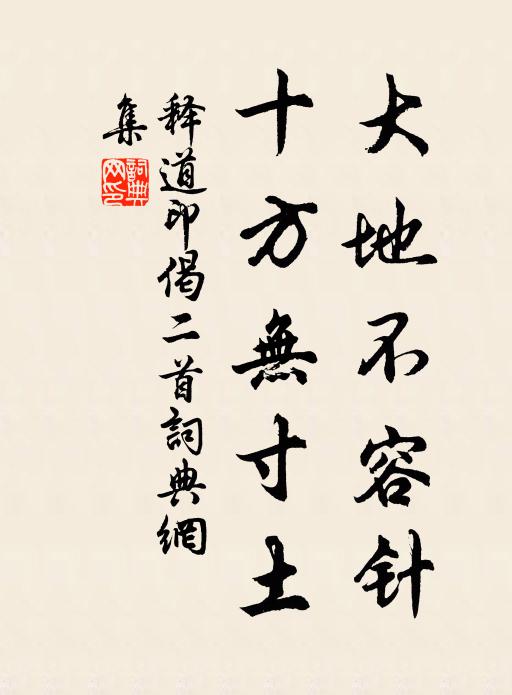 大地不容针
十方無寸土
释道印偈二首詞典網
集
詞典網印